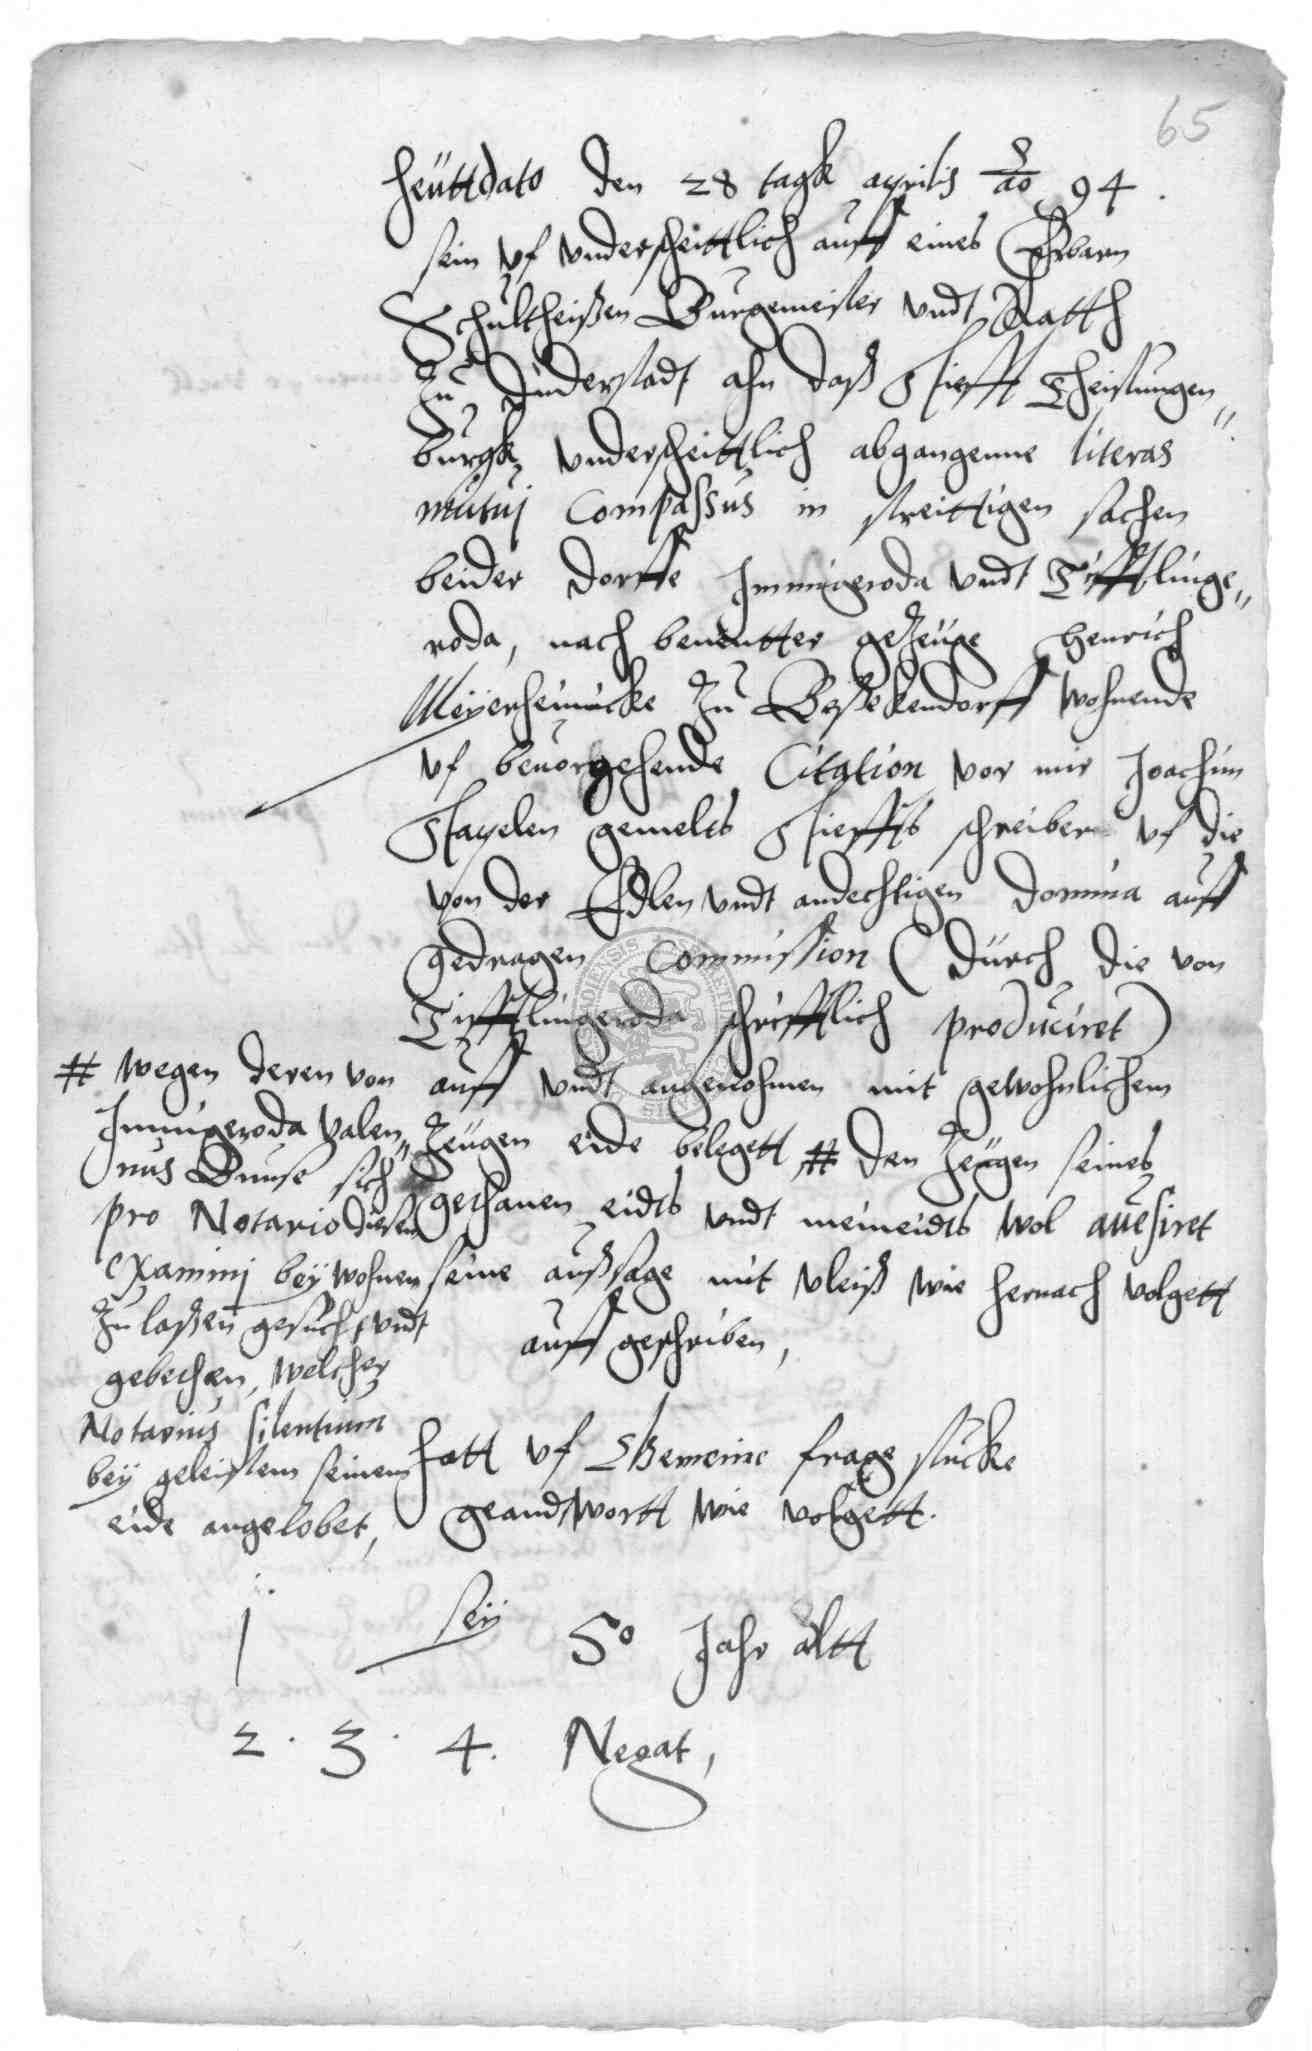 65
heüttdato den 28 tagk aprilis ao 94.
sein vf vnderscheittlich auff eines Erbarn
Schultheißen Burgemeister vndt Ratth
zu Duderstadt ahn daß Stiefft Theistungen„
burgk vnderscheittlich abgangenne literas
mutuj Compassus in streittigen sachen
beider dorffe Immigeroda vndt Tifftlinge„
roda, nach benentter gezeuge Henrich
Meyerheinicke zu Beßekendorff wohnende
vf beuorgehende Citation vor mir Joachim
Stapelen gemelts Stieffts schreiber vf die
von der Edlen vndt andechtigen Domina auff
gedragen Commission (durch die von
Tifftlingeroda schrifftlich produciret)
auff vndt angenohmen mit gewohnlichem
zeugen eide belegett # den zeugen seines
gethanen eidts vndt meineidts wol auesiret
seine außsage mit vleiß wie hernach volgett
auff geschriben,
# wegen deren von
Immigeroda Valen„
nus sich
pro Notario diesem
Examinj beywohnen
zu laßen gesucht vndt
gebethen, welcher
Notarius silentium
bey geleistem seinem
eide angelobet,
hatt vf Gemeine frage stucke
geandtwortt wie volgett.
1 sey 50 Jahr altt
2. 3. 4. Negat,